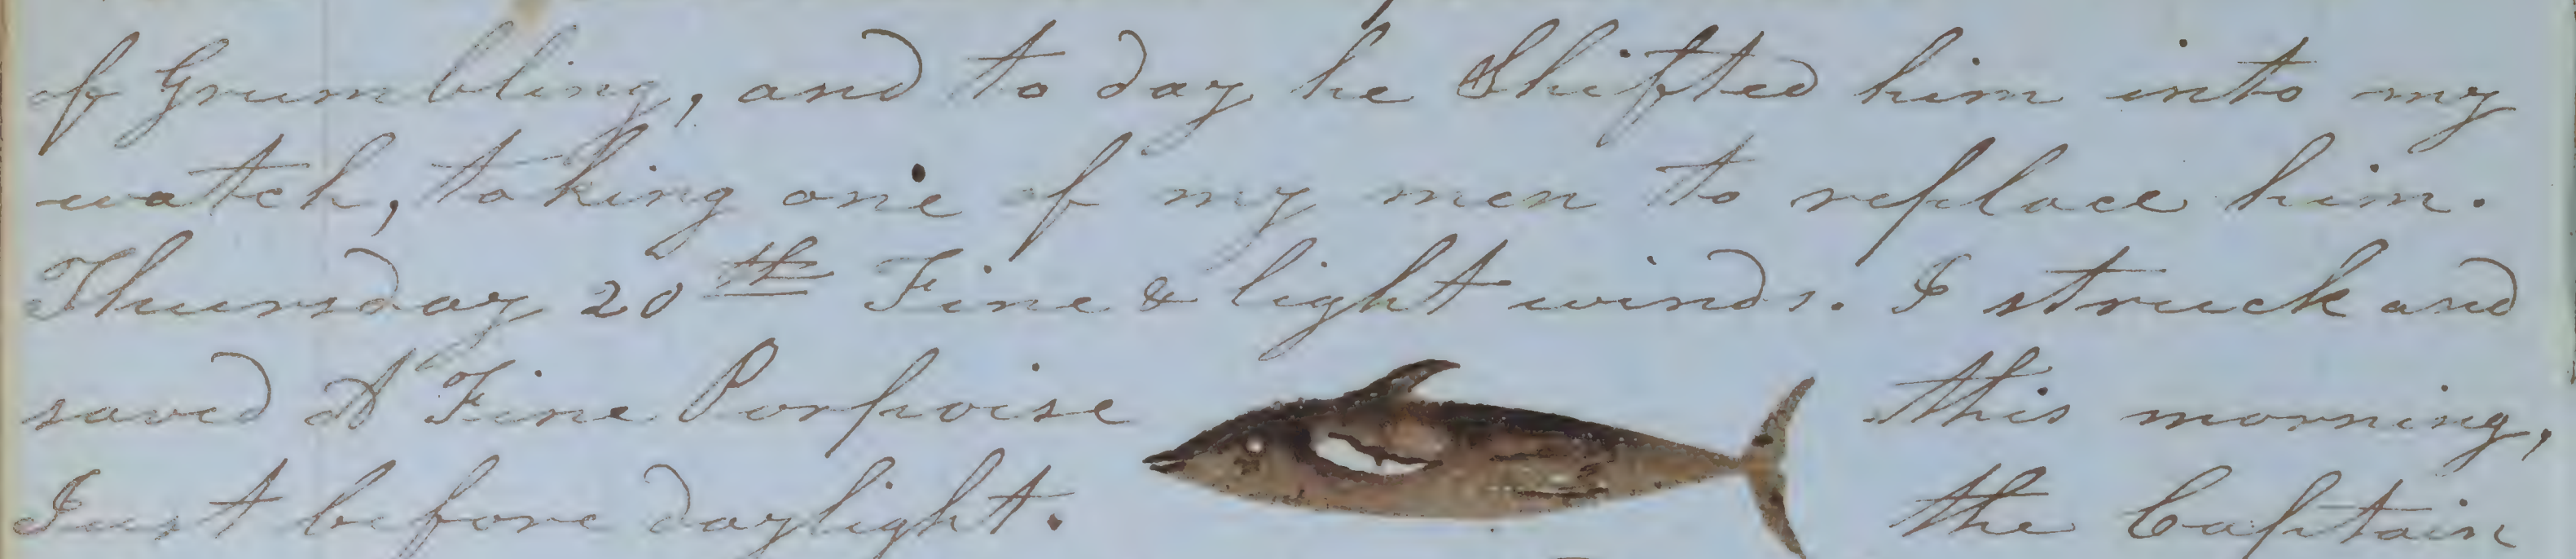 of Grumbling, and to day he Shifted him into my
watch, taking one of my men to replace him.
Thursday 20th Fine & light winds. I struck and
saved A Fine Porpoise this morning,
Just before daylight. the Captain